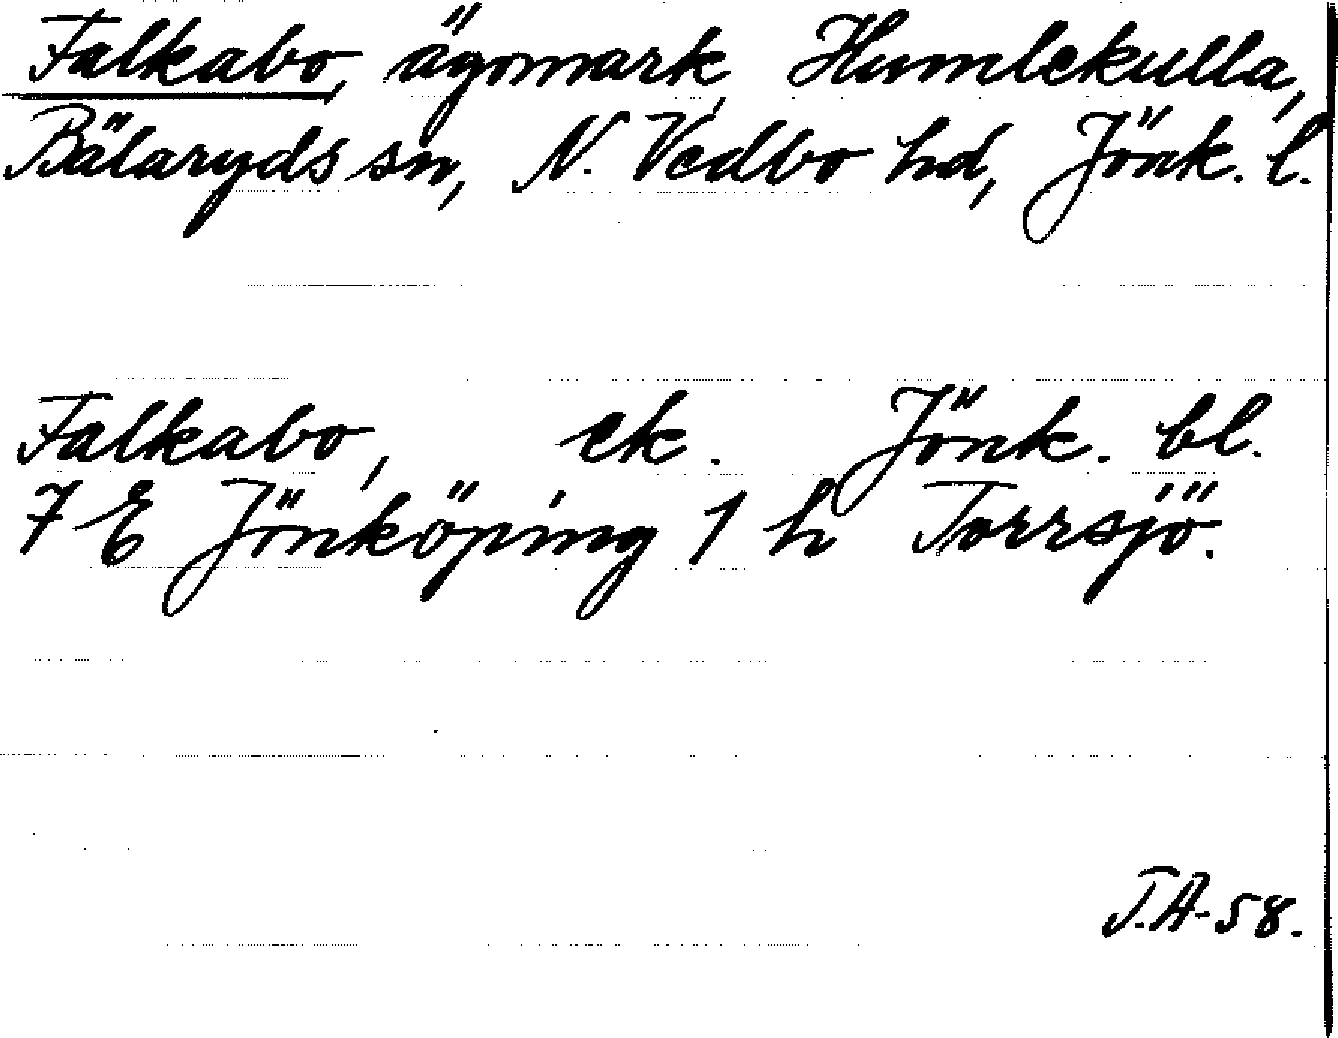 Falkabo, ägomark Humlekulla,
Bälaryds sn, N. Vedbo hd, Jönk. l.
Falkabo, ek. Jönk. bl.
7 E Jönköping 1 h Torrsjö.
J.A-58.